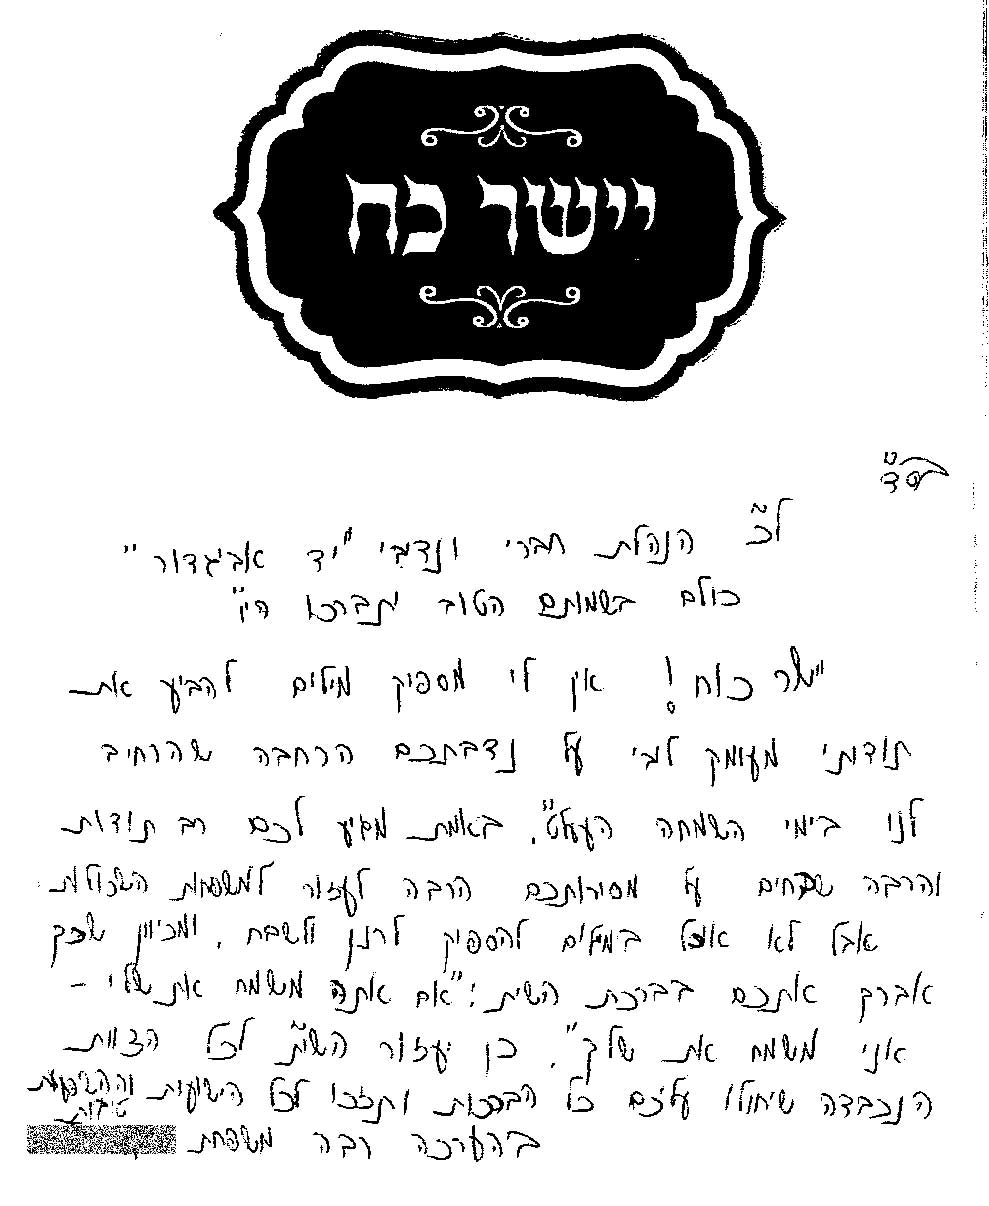 יישר כח
בס"ד
לכ' הנהלת חברי ונדיבי "יד אביגדור"
כולם בשמותם הטוב יתברכו הי"ו
יישר כוח! אין לי מספיק מילים להביע את
תודתי מעומק לבי על נדבתכם הרחבה שהרחיב
לנו בימי השמחה העעל"ט. באמת מגיע לכם רב תודות
והרבה שבחים על מסירותכם הרבה לעזור למשפחות השכולות
אבל לא אוכל במילים להספיק לרנן ולשבח, ומכיוון שכך
אברך אתכם בברכת השי"ת: "אם אתה משמח את שלי -
אני משמח את שלך". כן יעזור השי"ת לכל הצוות
הנכבדה שיחולו עליכם כל הברכות ותזכו לכל הישועות וההשפעות
טובות
בהערכה רבה משפחת